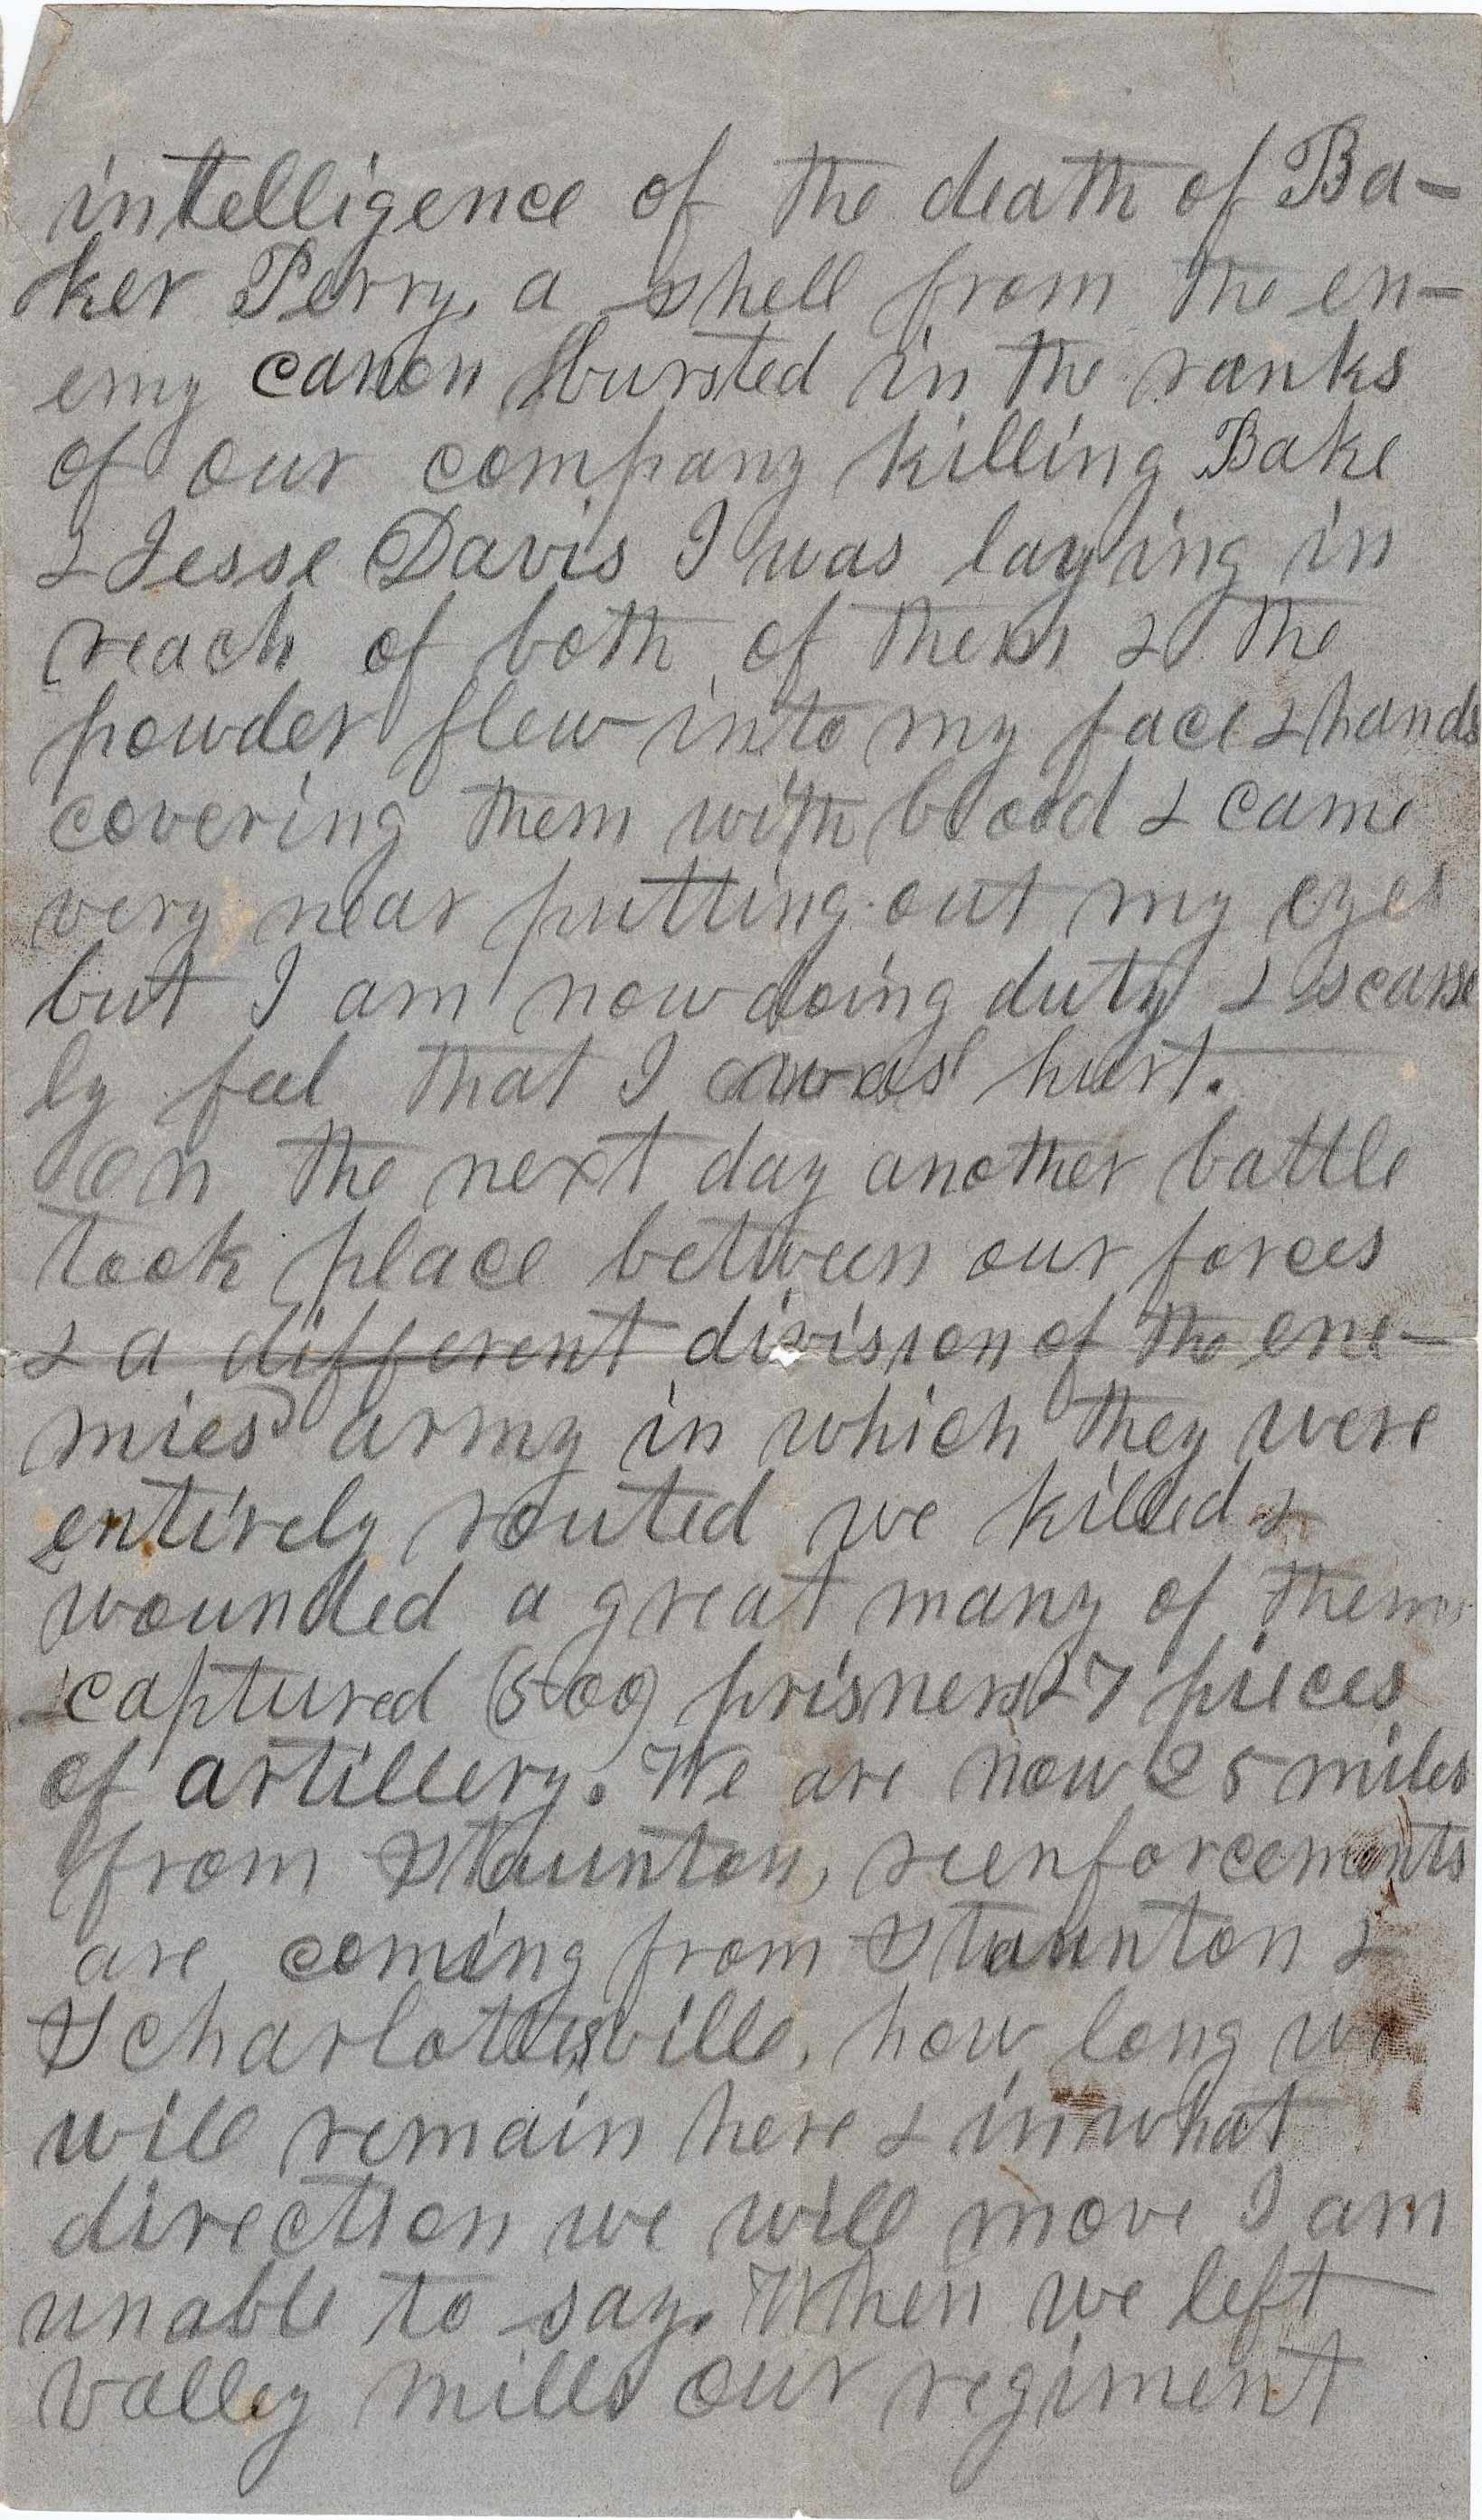 intelligence of the death of Ba-
ker Perry, a shell from the en-
emy canon bursted in the ranks
of our company killing Bake
& Jesse Davis I was laying in
reach of both of them & the
powder flew into my face & hands
covering them with blood & came
very near putting out my eyes
but I am now doing duty & scarse
ly feel that I was hurt.
On the next day another battle
took place between our forces
& a different division of the ene-
mies army in which they were
entirely routed we killed &
wounded a great many of them
& captured (500) prisners & 7 pieces
of artillery. We are now 25 miles
from Staunton, reenforcements
are coming from Staunton &
Scharlottesville, how long we
will remain here & in what
direction we will move I am
unable to say. When we left
valley mills our regiment